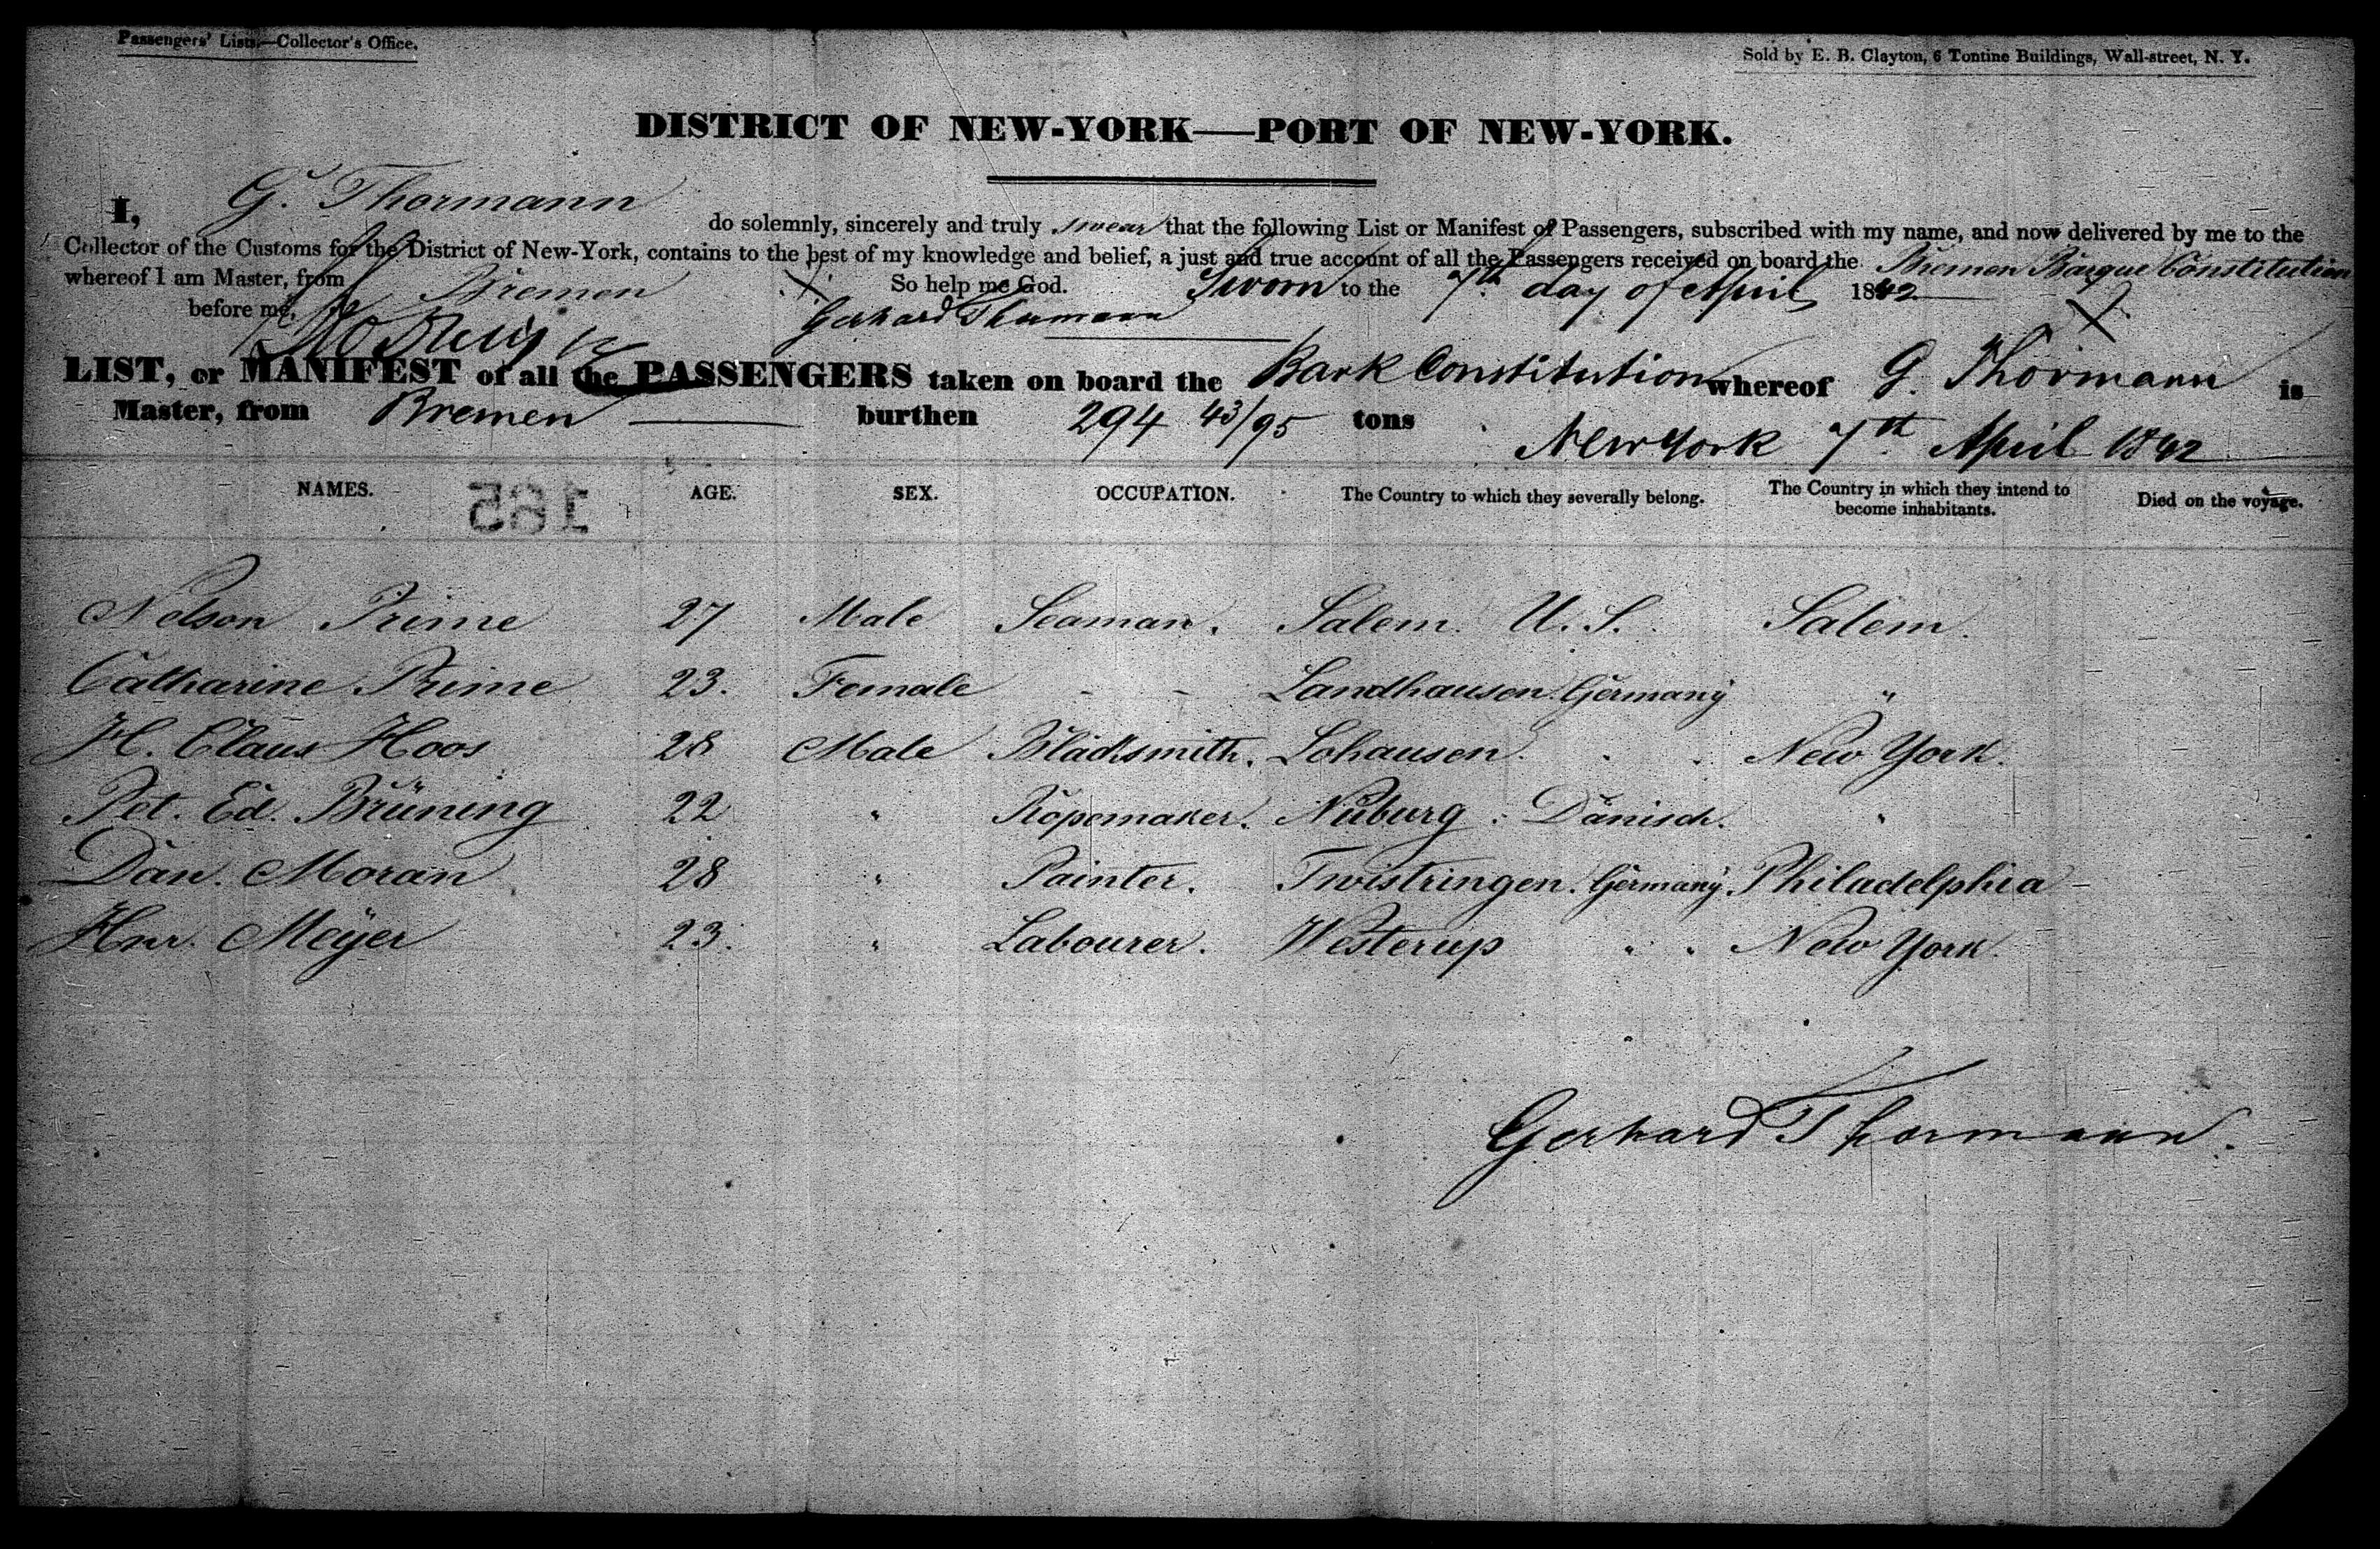 Passengers' Lists.—Collector's Office.
Sold by E. B. Clayton, 6 Tontine Buildings, Wall-street, N. Y.
DISTRICT OF NEW-YORK—PORT OF NEW-YORK.
I, G. Thormann do solemnly, sincerely and truly swear that the following List or Manifest of Passengers, subscribed with my name, and now delivered by me to the
Collector of the Customs for the District of New-York, contains to the best of my knowledge and belief, a just and true account of all the Passengers received on board the Bremen Barque Constitution
whereof I am Master, from Bremen So help me God. Sworn to the 7th day of April 1842
before me, Gerhard Thormann
LIST, or MANIFEST of all the PASSENGERS taken on board the Bark Constitution whereof G. Thormann is
Master, from Bremen burthen 294 43/95 tons
New York 7th April 1842
NAMES. AGE. SEX. OCCUPATION. The Country to which they severally belong. The Country in which they intend to become inhabitants. Died on the voyage.
185
Nelson Prime 27 Male Seaman. Salem. U. S. Salem.
Catharine Prime 23. Female - - Landhausen. Germany "
H. Claus Hoos 28 Male Blacksmith. Lohausen. " " New York.
Pet. Ed. Brüning 22 " Ropemaker. Nüburg : Dänisch. "
Dan. Moran 28 " Painter. Twistringen. Germany. Philadelphia
Hnr. Meÿer 23. " Labourer. Westerup " " New York.
Gerhard Thormann.